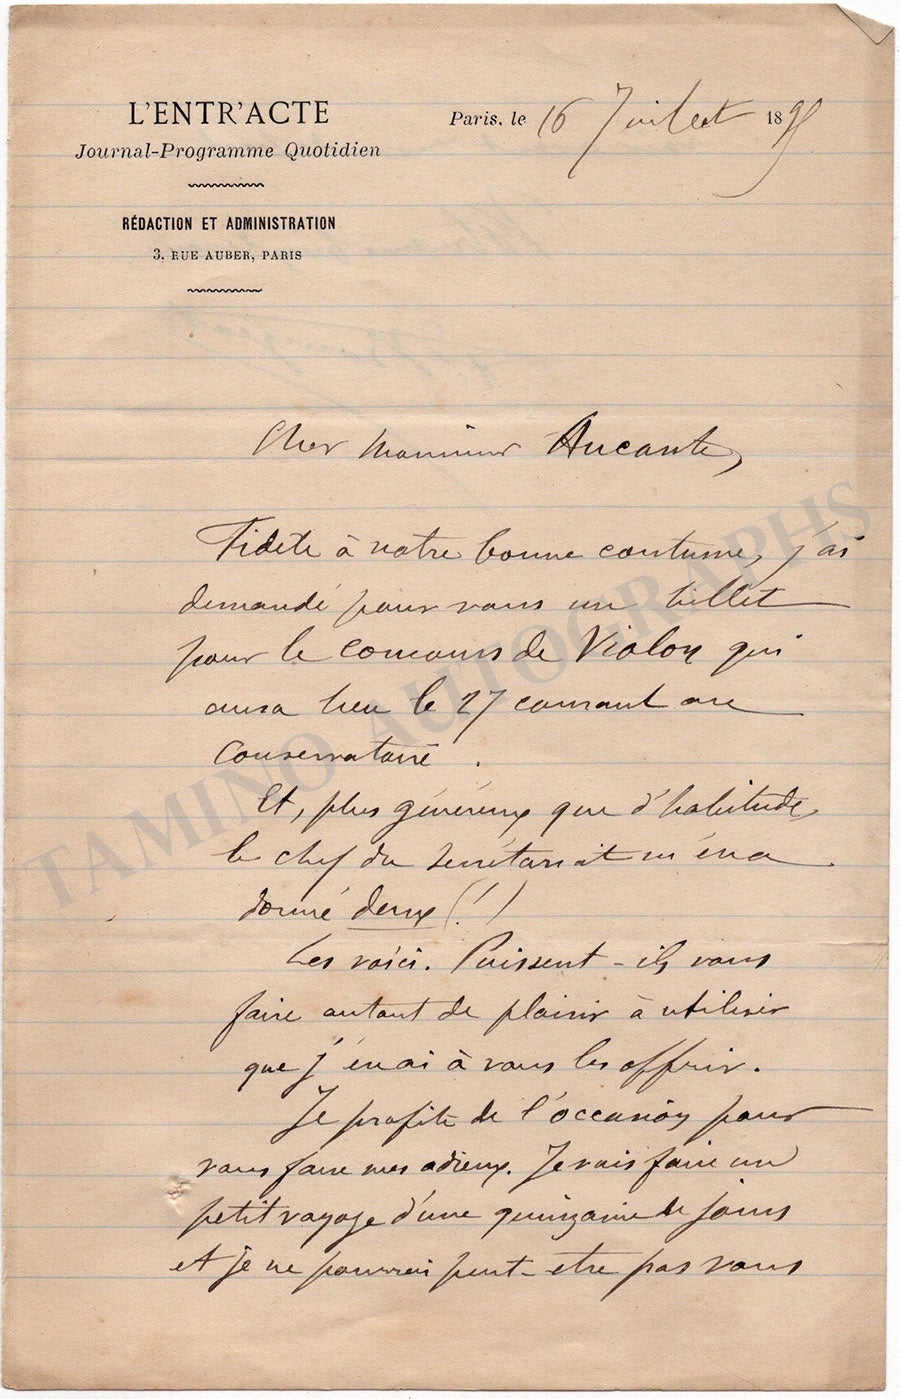 L'ENTR'ACTE
Journal-Programme Quotidien
RÉDACTION ET ADMINISTRATION
3, RUE AUBER, PARIS
Paris, le 16 Juillet 189
Cher Monsieur Aucante,
Fidèle à notre bonne coutume, j'ai
demandé pour vous un billet
pour le concours de Violon qui
aura lieu le 27 courant au
Conservatoire.
Et, plus généreux que d'habitude,
le chef du secrétariat m'en a
donné deux (!)
Les voici. Puissent-ils vous
faire autant de plaisir à utiliser
que j'en ai à vous les offrir.
Je profite de l'occasion pour
vous faire mes adieux. Je vais faire un
petit voyage d'une quinzaine de jours
et je ne pourrai peut-etre pas vous
TAMINO AUTOGRAPHS